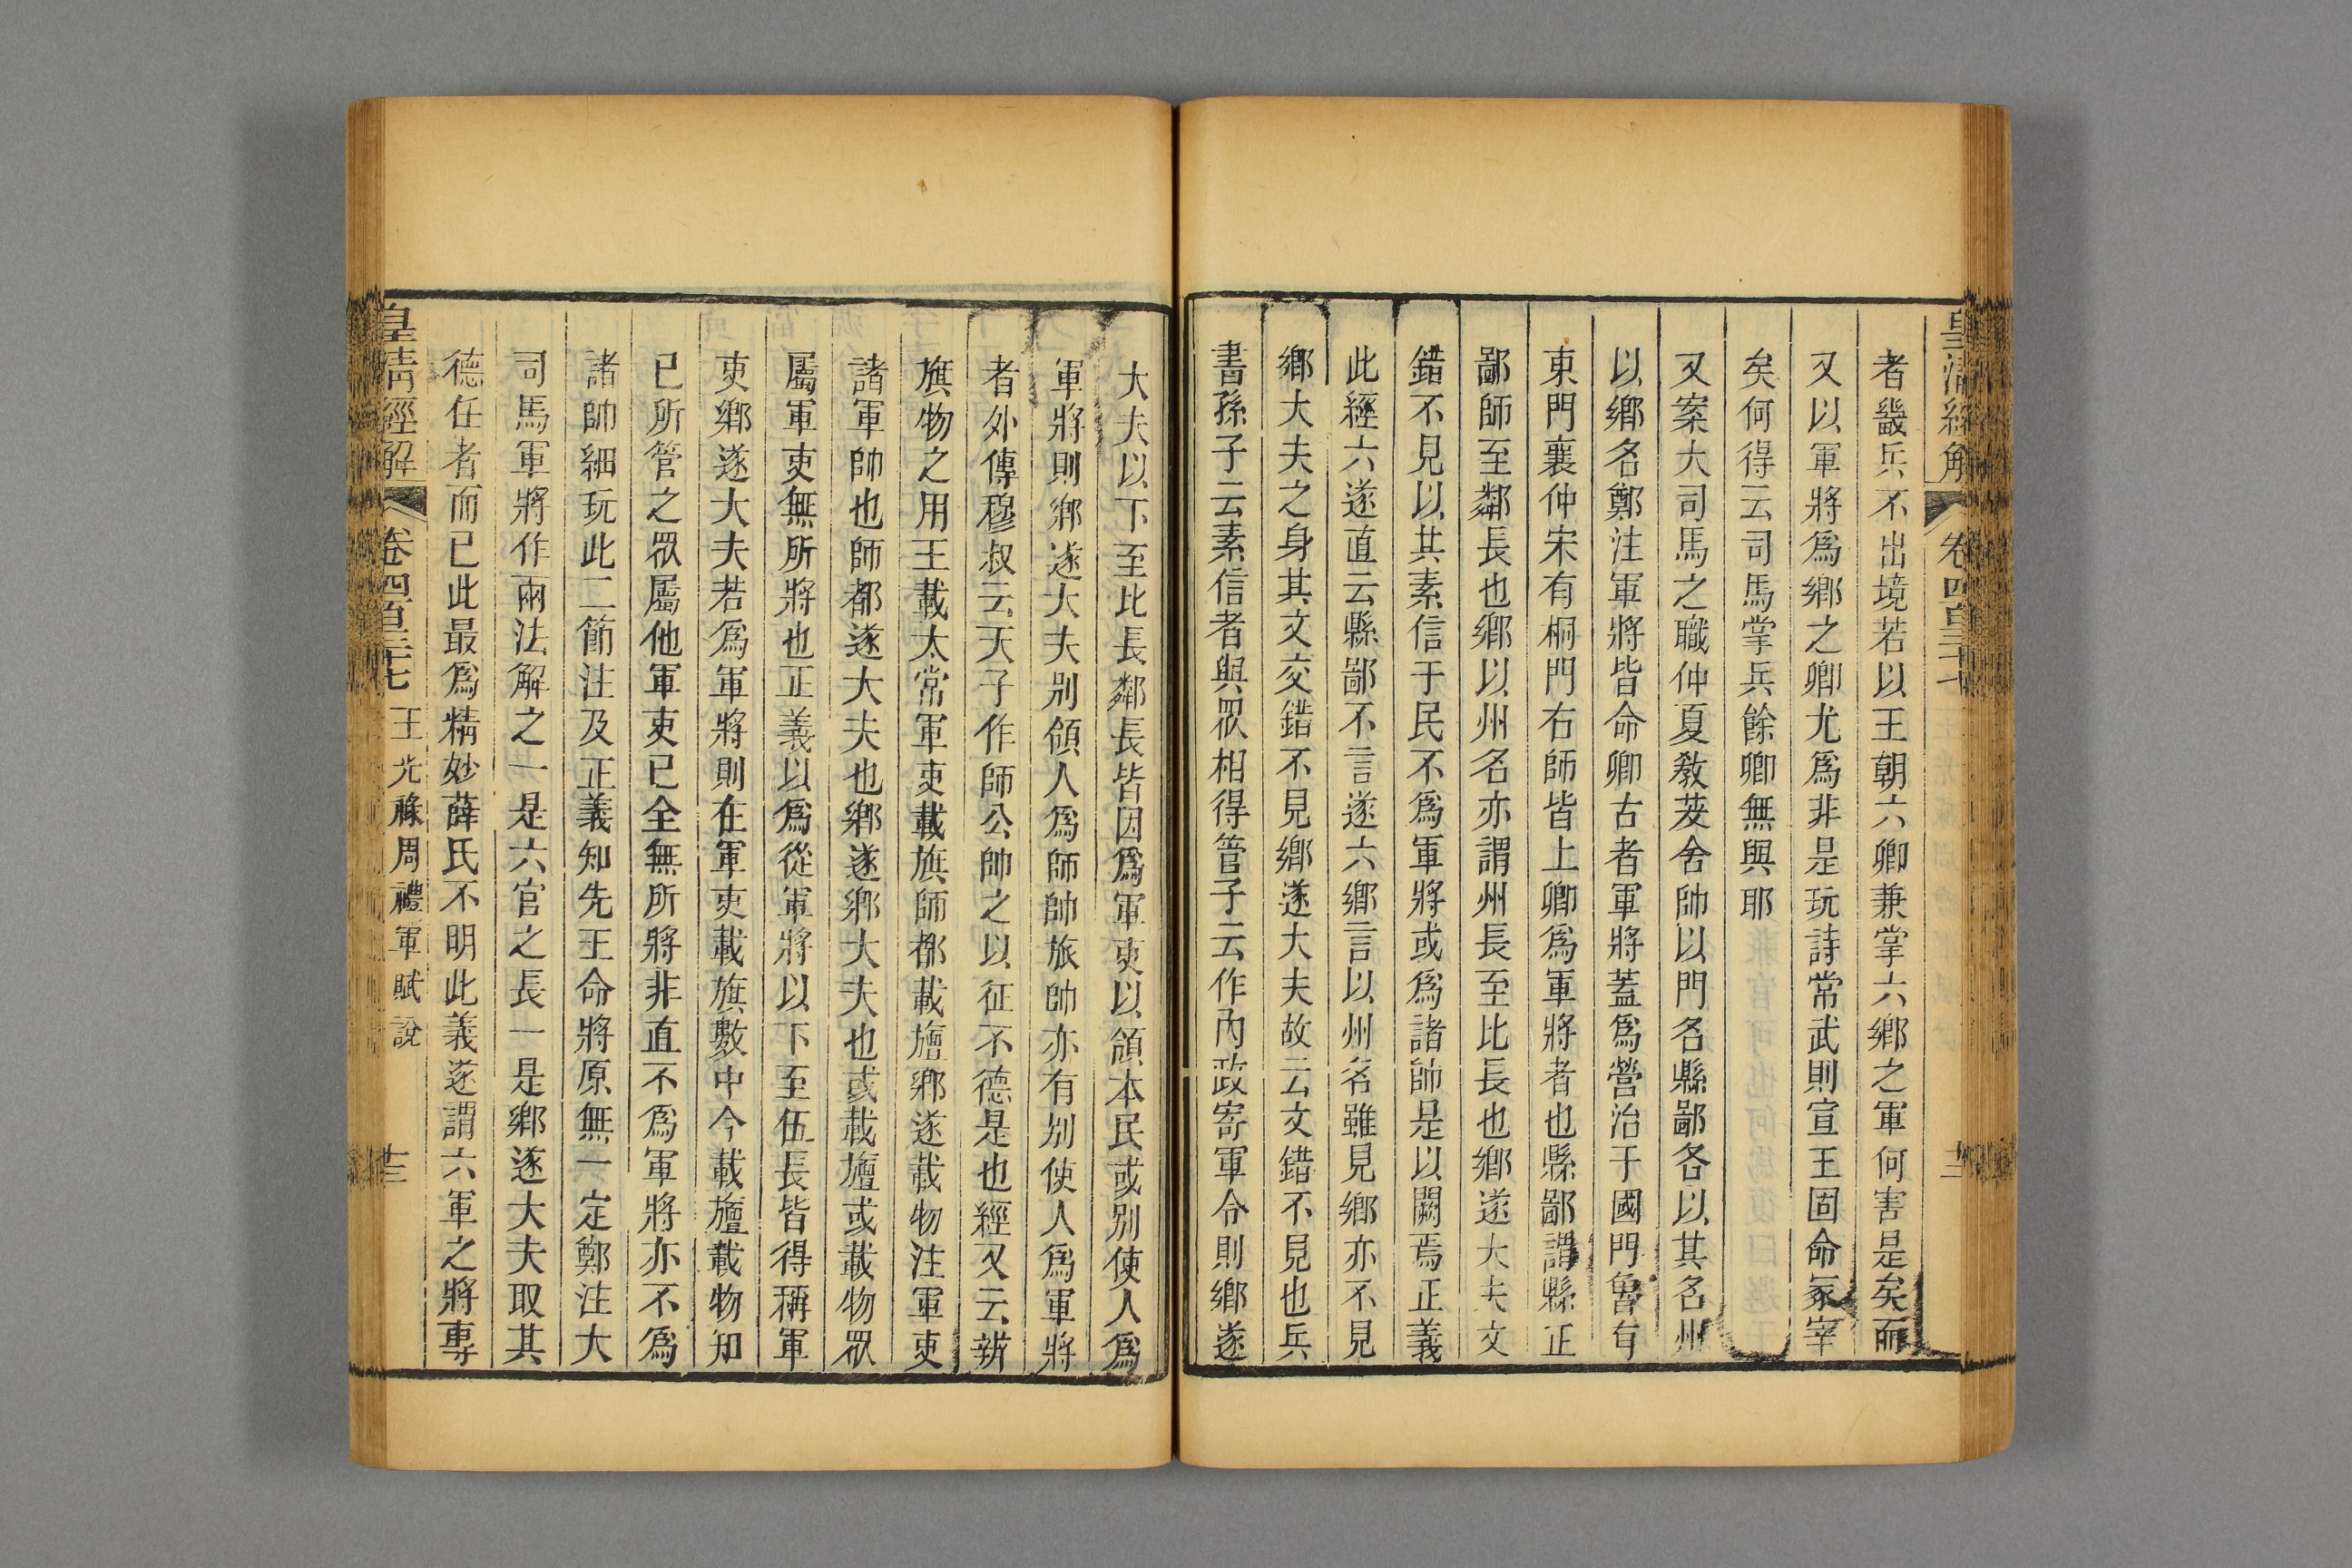 皇清經解 卷四百三十七 十二
者畿兵不出境若以王朝六卿兼掌六鄉之軍何害是矣而
又以軍將爲鄉之卿尤爲非是玩詩常武則宣王固命冢宰
矣何得云司馬掌兵餘卿無與耶
又案大司馬之職仲夏敎茇舍帥以門名縣鄙各以其名州
以鄉名鄭注軍將皆命卿古者軍將蓋爲營治于國門魯有
東門襄仲宋有桐門右師皆上卿爲軍將者也縣鄙謂縣正
鄙師至鄰長也鄉以州名亦謂州長至比長也鄉遂大夫文
錯不見以其素信于民不爲軍將或爲諸帥是以闕焉正義
此經六遂直云縣鄙不言遂六鄉言以州名雖見鄉亦不見
鄉大夫之身其文交錯不見鄉遂大夫故云文錯不見也兵
書孫子云素信者與眾相得管子云作內政寄軍令則鄉遂
大夫以下至比長鄰長皆因爲軍吏以領本民或別使人爲
軍將則鄉遂大夫別領人爲師帥旅帥亦有別使人爲軍將
者外傳穆叔云天子作師公帥之以征不德是也經又云辨
旗物之用王載太常軍吏載旗師都載旜鄉遂載物注軍吏
諸軍帥也師都遂大夫也鄉遂鄉大夫也或載旜或載物眾
屬軍吏無所將也正義以爲從軍將以下至伍長皆得稱軍
吏鄉遂大夫若爲軍將則在軍吏載旗數中今載旜載物知
已所管之眾屬他軍吏已全無所將非直不爲軍將亦不爲
諸帥細玩此二節注及正義知先王命將原無一定鄭注大
司馬軍將作兩法解之一是六官之長一是鄉遂大夫取其
德任者而已此最爲精妙薛氏不明此義遂謂六軍之將專
皇清經解 卷四百三十七 王光祿周禮軍賦說 十三